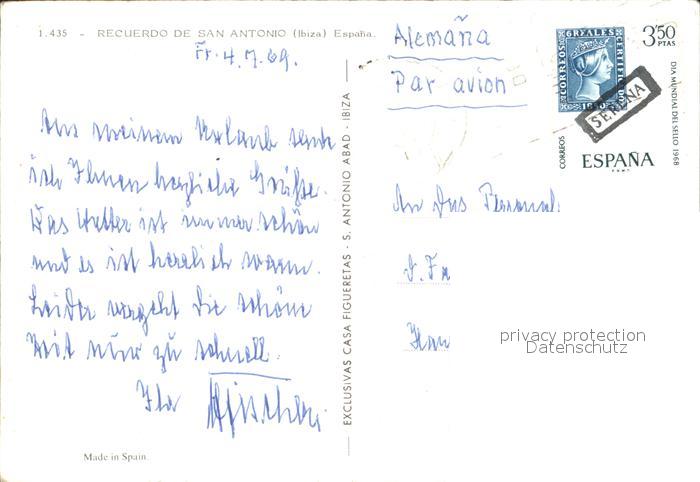 1.435 - RECUERDO DE SAN ANTONIO (Ibiza) España.
Fr. 4.7.69.
Aus meinem Urlaub sende
ich Ihnen herzliche Grüße.
Das Wetter ist immer schön
und es ist herrlich warm.
Leider vergeht die schöne
Zeit nur zu schnell.
Ihr
Made in Spain.
EXCLUSIVAS CASA FIGUERETAS - S. ANTONIO ABAD - IBIZA
Alemaña
Par avion
CORREOS
6 REALES
CERTIFICADO
1850
3'50
PTAS
DIA MUNDIAL DEL SELLO 1968
CORREOS
ESPAÑA
F.N.M.T.
An das Personal:
d. Fa
privacy protection
Datenschutz